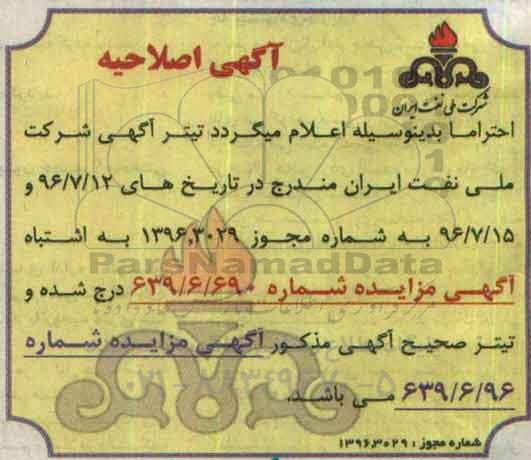 آگهی اصلاحیه
شرکت ملی نفت ایران
احتراما بدینوسیله اعلام میگردد تیتر آگهی شرکت
ملی نفت ایران مندرج در تاریخ های ۹۶/۷/۱۲ و
۹۶/۷/۱۵ به شماره مجوز ۱۳۹۶,۳۰۲۹ به اشتباه
آگهی مزایده شماره ۶۳۹/۶/۶۹۰ درج شده و
تیتر صحیح آگهی مذکور آگهی مزایده شماره
۶۳۹/۶/۹۶ می باشد.
شماره مجوز : ۱۳۹۶,۳۰۲۹
ParsNamadData